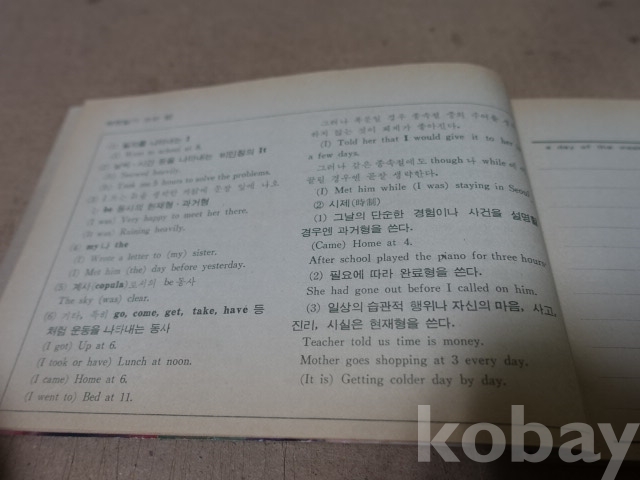 I went to school at 8.
(It) Snowed heavily.
(It) Took me 3 hours to solve the problems.
는 be 동사의 현재형·과거형
(I was) Very happy to meet her there.
(It was) Raining heavily.
(4) my나 the
(I) Wrote a letter to (my) sister.
(I) Met him (the) day before yesterday.
(5) 계사(copula)로서의 be동사
The sky (was) clear.
(6) 기타, 특히 go, come, get, take, have 등
처럼 운동을 나타내는 동사
(I got) Up at 6.
(I took or have) Lunch at noon.
(I came) Home at 6.
(I went to) Bed at 11.
그러나 복문일 경우 종속절 중의 주어를
하지 않는 것이 폐세가 좋아진다.
(I) Told her that I would give it to her
a few days.
그러나 같은 종속절에도 though나 while에
끌릴 경우엔 곧잘 생략한다.
(I) Met him while (I was) staying in Seoul
(2) 시제(時制)
(1) 그날의 단순한 경험이나 사건을 설명할
경우엔 과거형을 쓴다.
(Came) Home at 4.
After school played the piano for three hours
(2) 필요에 따라 완료형을 쓴다.
She had gone out before I called on him.
(3) 일상의 습관적 행위나 자신의 마음, 사고,
진리, 사실은 현재형을 쓴다.
Teacher told us time is money.
Mother goes shopping at 3 every day.
(It is) Getting colder day by day.
kobay